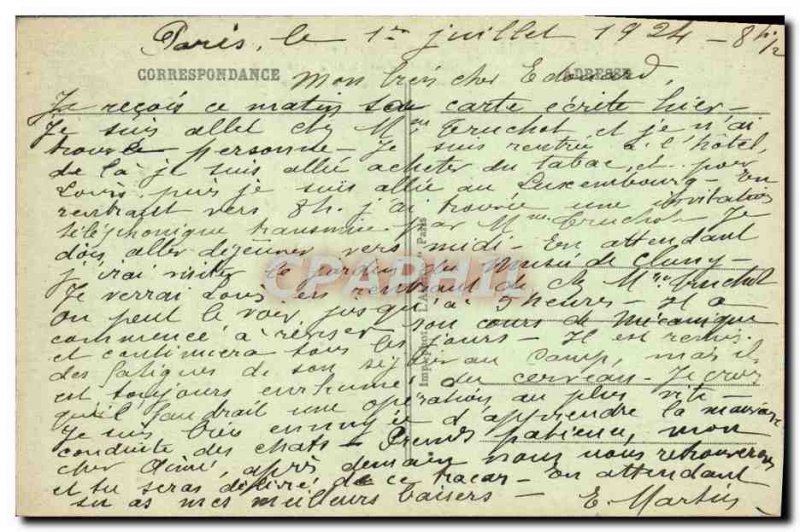 Paris, le 1er juillet 1924 - 8h 1/2
CORRESPONDANCE ADRESSE
Mon très cher Edouard,
Je reçois ce matin sa carte écrite hier -
Je suis allé chez Mme Truchot et je n'ai
trouvé personne - Je suis rentré à l'hôtel,
de là je suis allé acheter du tabac, et pour
Louis, puis je suis allé au Luxembourg - En
rentrant vers 8h. j'ai trouvé une invitation
téléphonique transmise par Mme Truchot - Je
dois aller déjeuner vers midi - En attendant
j'irai visiter le jardin du Musée de Cluny -
Je verrai Louis en rentrant de chez Mme Truchot
on peut le voir jusqu'à 5 heures - Il a
commencé à réviser son cours de mécanique
et continuera tous les jours - Il est remis
des fatigues de son séjour au camp, mais il
est toujours enrhumé du cerveau - Je crois
qu'il faudrait une opération au plus vite -
Je suis bien ennuyé d'apprendre la mauvaise
conduite des chats - Prends patience, mon
cher Aimé, après demain nous nous retrouverons
et tu seras délivré de ce tracas - En attendant
tu as mes meilleurs baisers - E. Martin
CPARAMA
Imp.-Phot. Paris